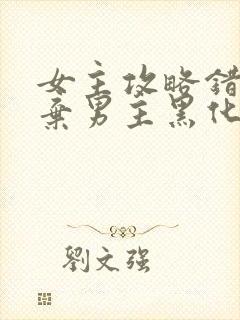 女主攻略错
弃男主黑化
劉文强